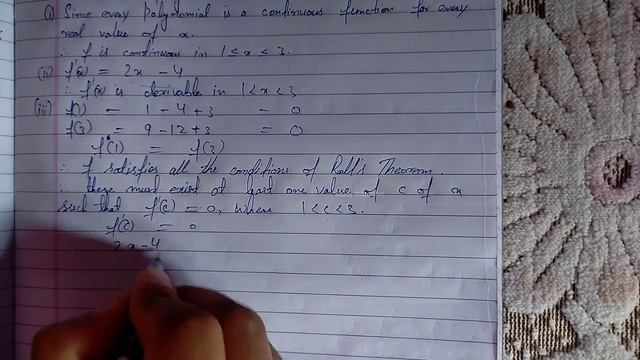 (i) Since every polynomial is a continuous function for every
real value of x.
∴ f is continuous in 1 ≤ x ≤ 3.
(ii) f'(x) = 2x - 4
∴ f'(x) is derivable in 1 < x < 3
(iii) f(1) = 1 - 4 + 3 = 0
f(3) = 9 - 12 + 3 = 0
f(1) = f(3)
∴ f satisfies all the conditions of Roll's Theorem.
∴ there must exist at least one value of c of x
such that f'(c) = 0, where 1 < c < 3.
f'(c) = 0
2x - 4